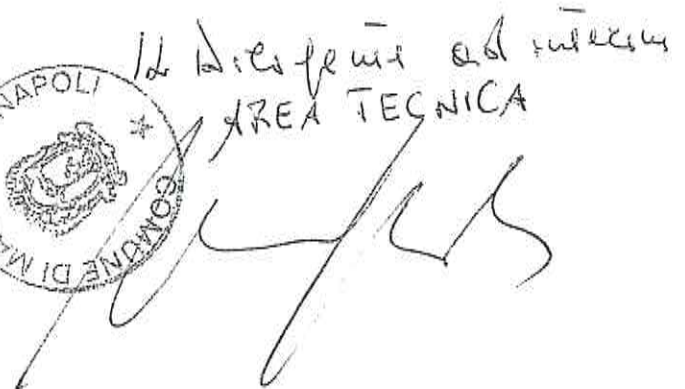 Il Dirigente ad interim
AREA TECNICA
NAPOLI
COMUNE DI MA